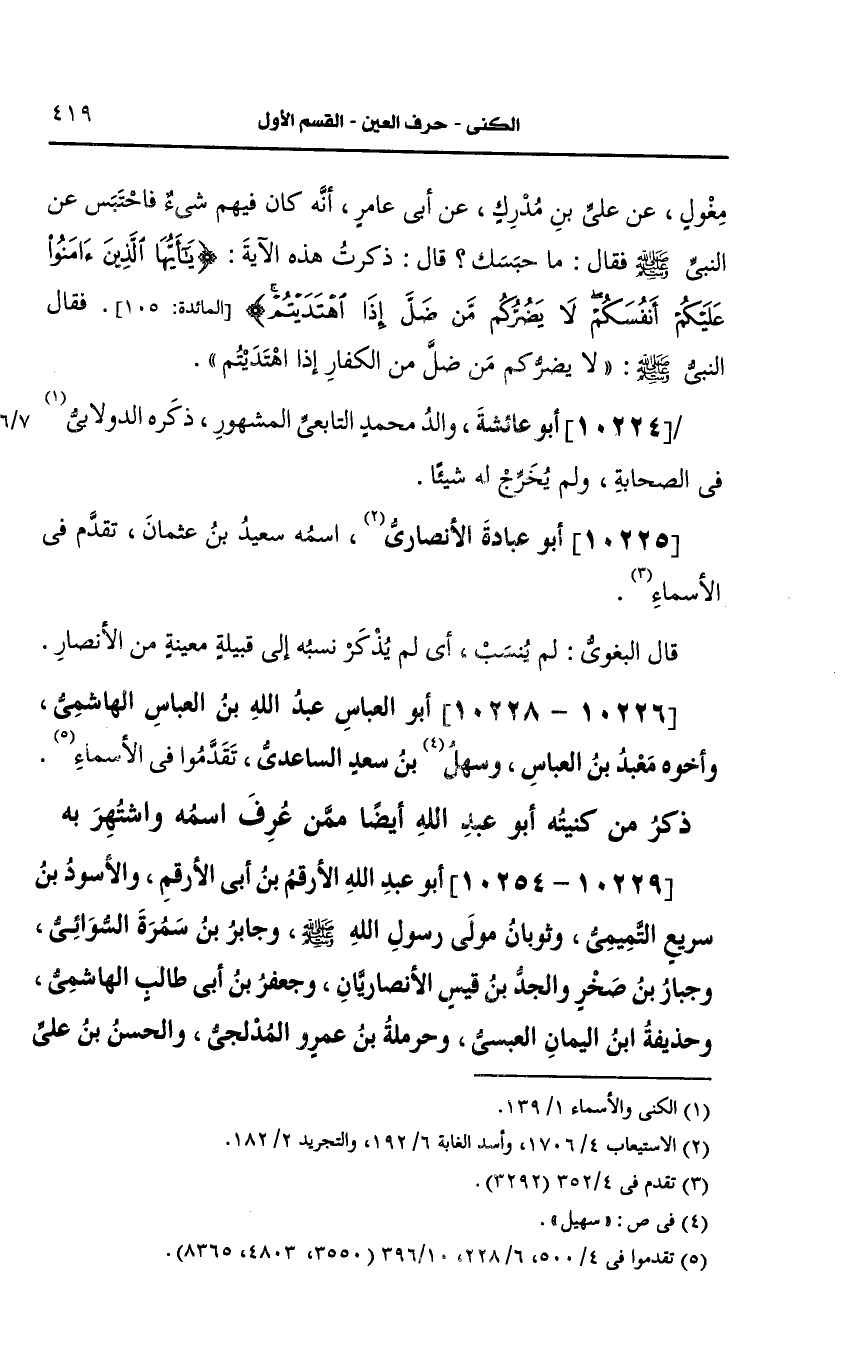 الكنى - حرف العين - القسم الأول ٤١٩
مِغْولٍ ، عن علىِّ بنِ مُدْرِكٍ ، عن أبى عامرٍ ، أنَّه كان فيهم شىءٌ فاحْتَبَس عن
النبىِّ ﷺ فقال : ما حبَسَك ؟ قال : ذكرتُ هذه الآيةَ : ﴿يَٰٓأَيُّهَا ٱلَّذِينَ ءَامَنُوا۟
عَلَيْكُمْ أَنفُسَكُمْ ۖ لَا يَضُرُّكُم مَّن ضَلَّ إِذَا ٱهْتَدَيْتُمْ ۚ﴾ [المائدة: ١٠٥] . فقال
النبىُّ ﷺ : « لا يضرُّكم مَن ضلَّ من الكفارِ إذا اهْتَدَيْتُم » .
/[١٠٢٢٤] أبو عائشةَ ، والدُ محمدٍ التابعىِّ المشهورِ ، ذكَره الدولابىُّ(١) ٦/٧
فى الصحابةِ ، ولم يُخَرِّجْ له شيئًا .
[١٠٢٢٥] أبو عبادةَ الأنصارىُّ(٢) ، اسمُه سعيدُ بنُ عثمانَ ، تقدَّم فى
الأسماءِ(٣) .
قال البغوىُّ : لم يُنسَبْ ، أى لم يُذْكَرْ نسبُه إلى قبيلةٍ معينةٍ من الأنصارِ .
[١٠٢٢٦ - ١٠٢٢٨] أبو العباسِ عبدُ اللهِ بنُ العباسِ الهاشمِىُّ ،
وأخوه مَعْبدُ بنُ العباسِ ، وسهلُ(٤) بنُ سعدٍ الساعدىُّ ، تَقَدَّمُوا فى الأسماءِ(٥) .
ذكرُ من كنيتُه أبو عبدِ اللهِ أيضًا ممَّن عُرِفَ اسمُه واشتُهِرَ به
[١٠٢٢٩ - ١٠٢٥٤] أبو عبدِ اللهِ الأرقمُ بنُ أبى الأرقمِ ، والأسودُ بنُ
سريعٍ التَّمِيمِىُّ ، وثوبانُ مولَى رسولِ اللهِ ﷺ ، وجابرُ بنُ سَمُرَةَ السُّوَائِىُّ ،
وجبارُ بنُ صَخْرٍ والجدُّ بنُ قيسٍ الأنصاريَّانِ ، وجعفرُ بنُ أبى طالبٍ الهاشمِىُّ ،
وحذيفةُ ابنُ اليمانِ العبسىُّ ، وحرملةُ بنُ عمرٍو المُدْلجىُّ ، والحسنُ بنُ علىِّ
(١) الكنى والأسماء ١/ ١٣٩.
(٢) الاستيعاب ٤/ ١٧٠٦، وأسد الغابة ٦/ ١٩٢، والتجريد ٢/ ١٨٢.
(٣) تقدم فى ٤/ ٣٥٢ (٣٢٩٢) .
(٤) فى ص : « سهيل » .
(٥) تقدموا فى ٤/ ٥٠٠، ٦/ ٢٢٨، ١٠/ ٣٩٦ (٣٥٥٠، ٤٨٠٣، ٨٣٦٥) .